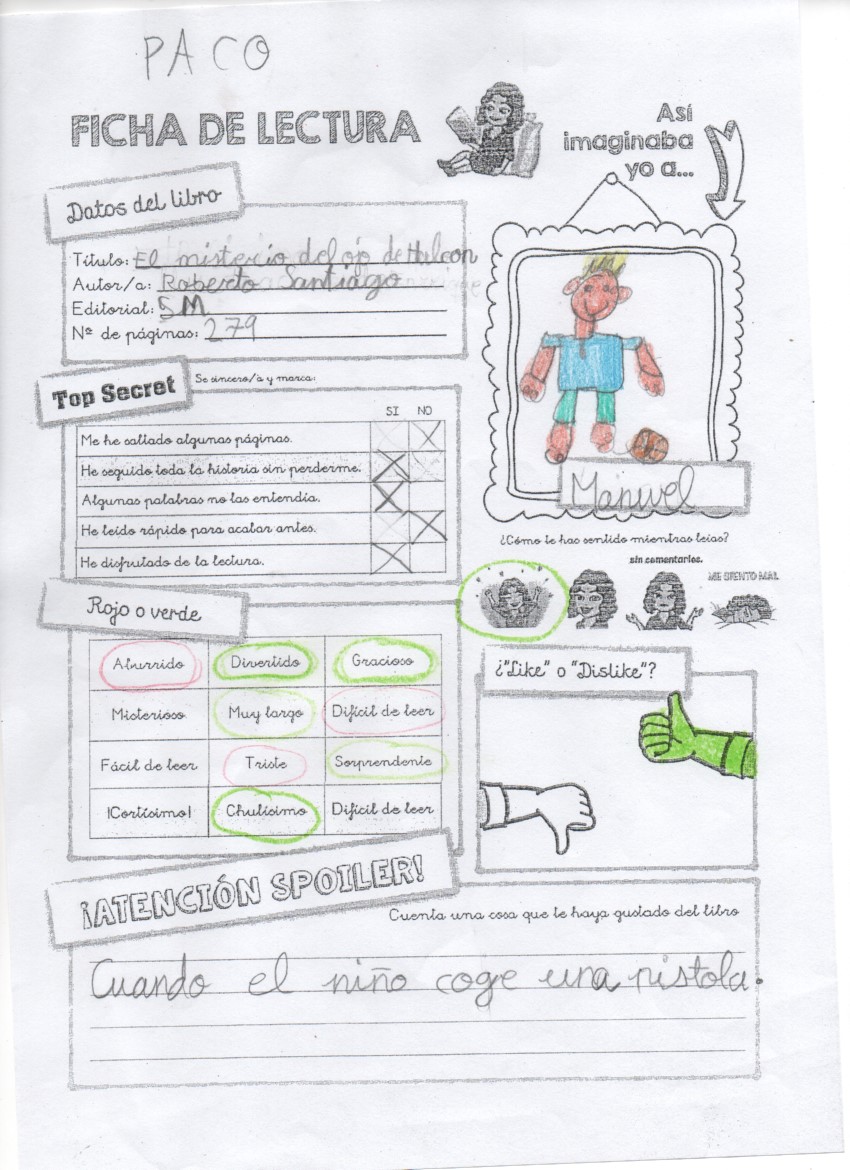 PACO
FICHA DE LECTURA
Así
imaginaba
yo a...
Datos del libro
Título: El misterio del ojo de Halcon
Autor/a: Roberto Santiago
Editorial: SM
Nº de páginas: 279
Top Secret
Se sincero/a y marca:
SI NO
Me he saltado algunas páginas.
He seguido toda la historia sin perderme.
Algunas palabras no las entendía.
He leído rápido para acabar antes.
He disfrutado de la lectura.
Manuel
¿Cómo te has sentido mientras leías?
sin comentarios.
ME SIENTO MAL
Rojo o verde
Aburrido Divertido Gracioso
Misterioso Muy largo Difícil de leer
Fácil de leer Triste Sorprendente
¡Cortísimo! Chulísimo Difícil de leer
¿"Like" o "Dislike"?
¡ATENCIÓN SPOILER!
Cuenta una cosa que te haya gustado del libro
Cuando el niño coge una pistola.